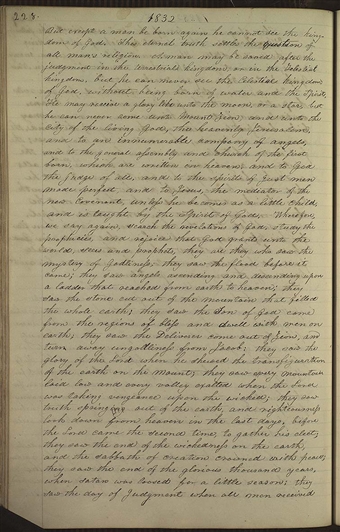 223. 1832
But except a man be born again he cannot see the king
dom of God. This eternal truth settles the question of
all men's religion. A man may be saved, after the
judgment in the terrestrial kingdom, or in the Telestial
kingdom, but he can never see the Celestial kingdom
of God, without being born of water and the Spirit.
He may receive a glory like unto the moon, or a star, but
he can never come unto Mount Zion, and unto the
city of the living God, the heavenly Jerusalem,
and to an innumerable company of angels,
and to the general assembly and church of the first
born, which are written in heaven, and to God
the Judge of all, and to the spirits of Just men
made perfect, and to Jesus, the mediator of the
new Covenant, unless he become as a little child,
and is taught by the Spirit of God. Wherefore,
we say again, search the revelations of God; study the
prophecies, and rejoice that God grants unto the
world, Seers and Prophets, they are they who saw the
mystery of Godliness; they saw the flood before it
came; they saw angels ascending and descending upon
a ladder that reached from earth to heaven; they
saw the stone cut out of the mountain that filled
the whole earth; they saw the Son of God come
from the regions of bliss and dwell with men on
earth; they saw the Deliverer come out of Zion, and
turn away ungodliness from Jacob; they saw the
glory of the Lord when he showed the transfiguration
of the earth on the mount; they saw every mountain
laid low and every valley exalted when the Lord
was taking vengeance upon the wicked; they saw
truth springing out of the earth, and righteousness
look down from heaven in the last days, before
the Lord came the second time, to gather his elect;
they saw the end of wickedness on the earth,
and the Sabbath of creation crowned with peace;
they saw the end of the glorious thousand years,
when Satan was loosed for a little season; they
saw the day of Judgment when all men received